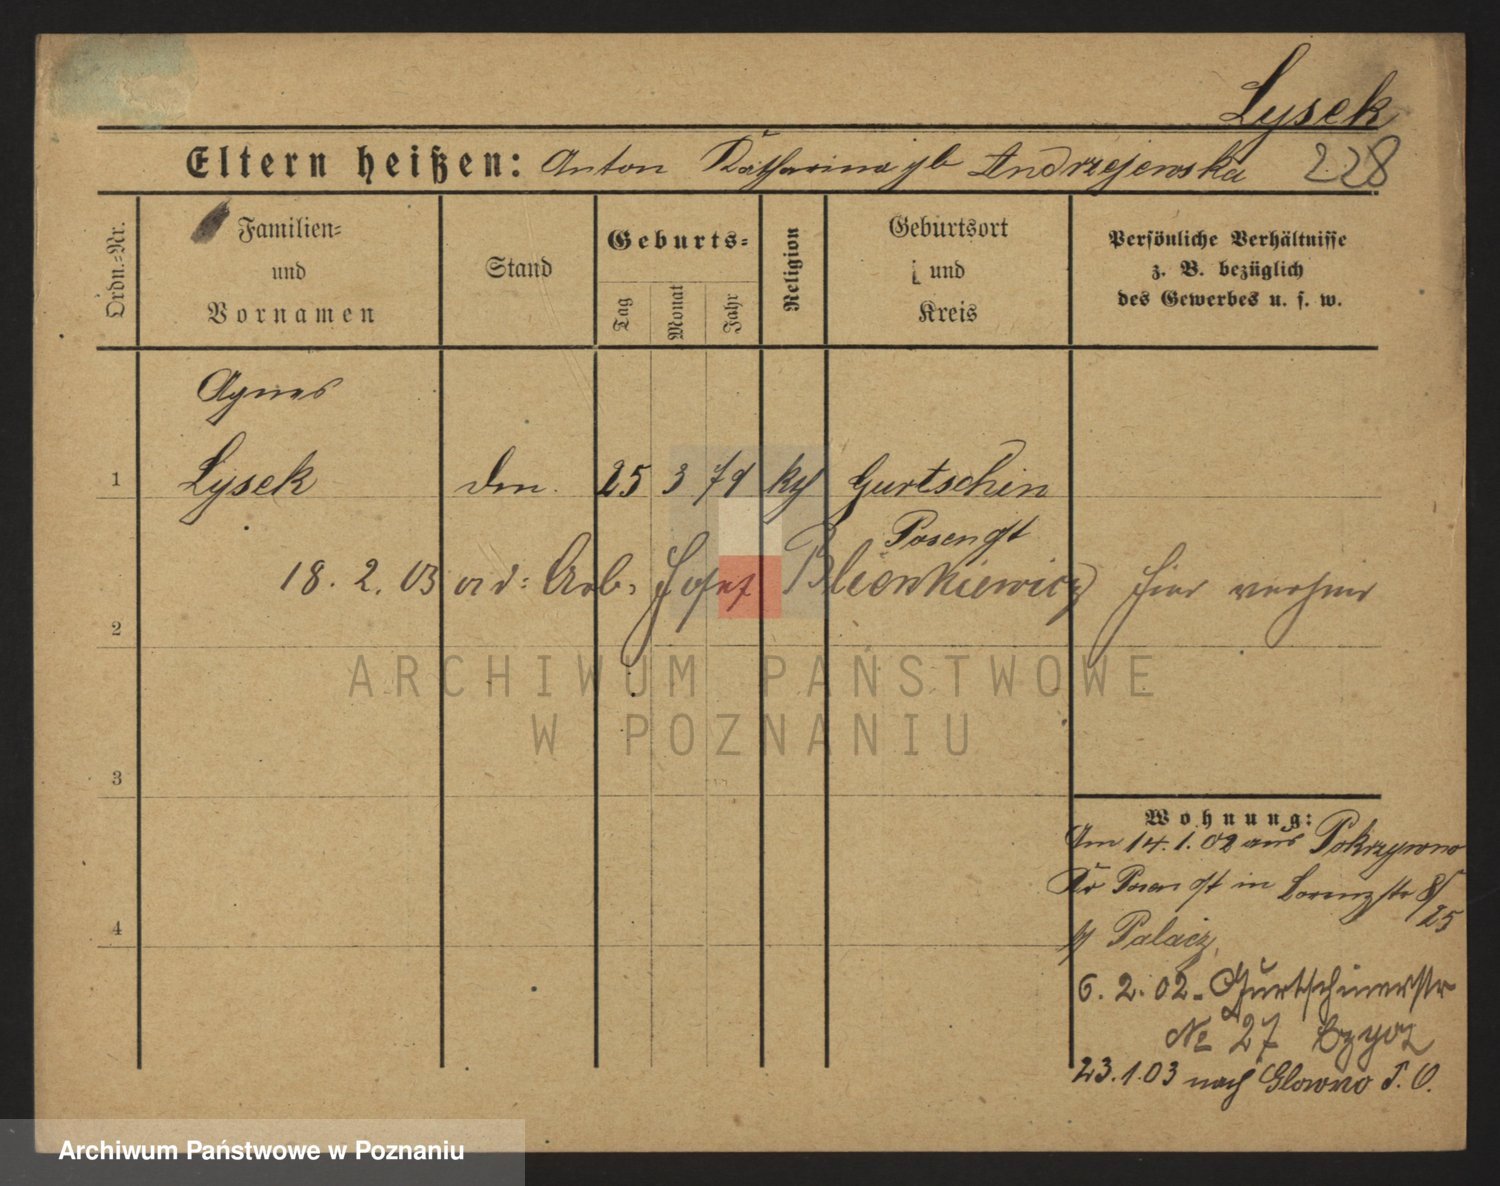 Lysek
Eltern heißen: Anton Katharina gb Andrzejewska 228
Ordn.-Nr.
Familien-
und
Vornamen
Stand
Geburts-
Tag
Monat
Jahr
Religion
Geburtsort
und
Kreis
Persönliche Verhältnisse
z. B. bezüglich
des Gewerbes u. s. w.
Agnes
1 Lysek 25 3 79 Gurtschin
Posen
18. 2. 03 Arb. Josef hier
2
ARCHIWUM PAŃSTWOWE
W POZNANIU
3
Wohnung:
Am 14. 1. 02 aus Pokrzywno
Kr Posen Ost in Lorenzstr
25
4
Palacz
6. 2. 02. Gurtschinerstr
No 27
23. 1. 03 nach Glowno P. O.
Archiwum Państwowe w Poznaniu